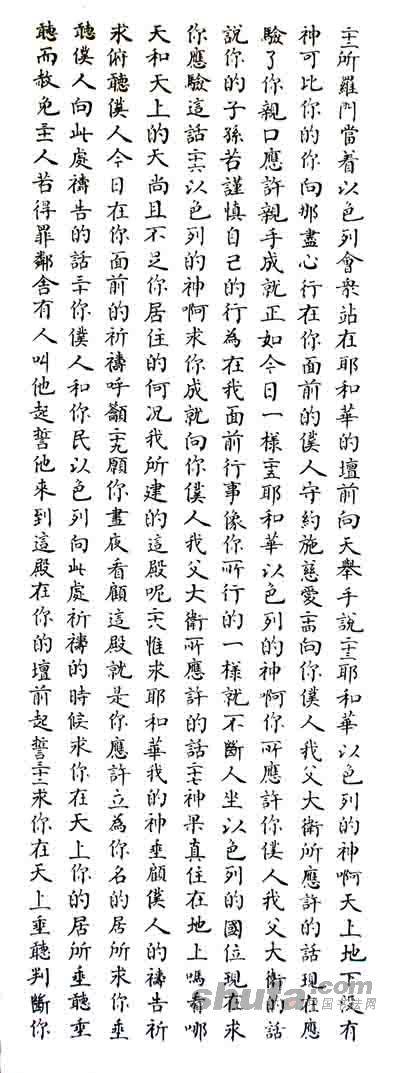 二十二所羅門當着以色列會衆站在耶和華的壇前向天舉手說二十三耶和華以色列的神啊天上地下沒有
神可比你的你向那盡心行在你面前的僕人守約施慈愛二十四向你僕人我父大衛所應許的話現在應
驗了你親口應許親手成就正如今日一樣二十五耶和華以色列的神啊你所應許你僕人我父大衛的話
說你的子孫若謹慎自己的行為在我面前行事像你所行的一樣就不斷人坐以色列的國位現在求
你應驗這話二十六以色列的神啊求你成就向你僕人我父大衛所應許的話二十七神果真住在地上嗎看哪
天和天上的天尚且不足你居住的何况我所建的這殿呢二十八惟求耶和華我的神垂顧僕人的禱告祈
求俯聽僕人今日在你面前的祈禱呼籲二十九願你晝夜看顧這殿就是你應許立為你名的居所求你垂
聽僕人向此處禱告的話三十你僕人和你民以色列向此處祈禱的時候求你在天上你的居所垂聽垂
聽而赦免三十一人若得罪鄰舍有人叫他起誓他來到這殿在你的壇前起誓三十二求你在天上垂聽判斷你
中国书法网